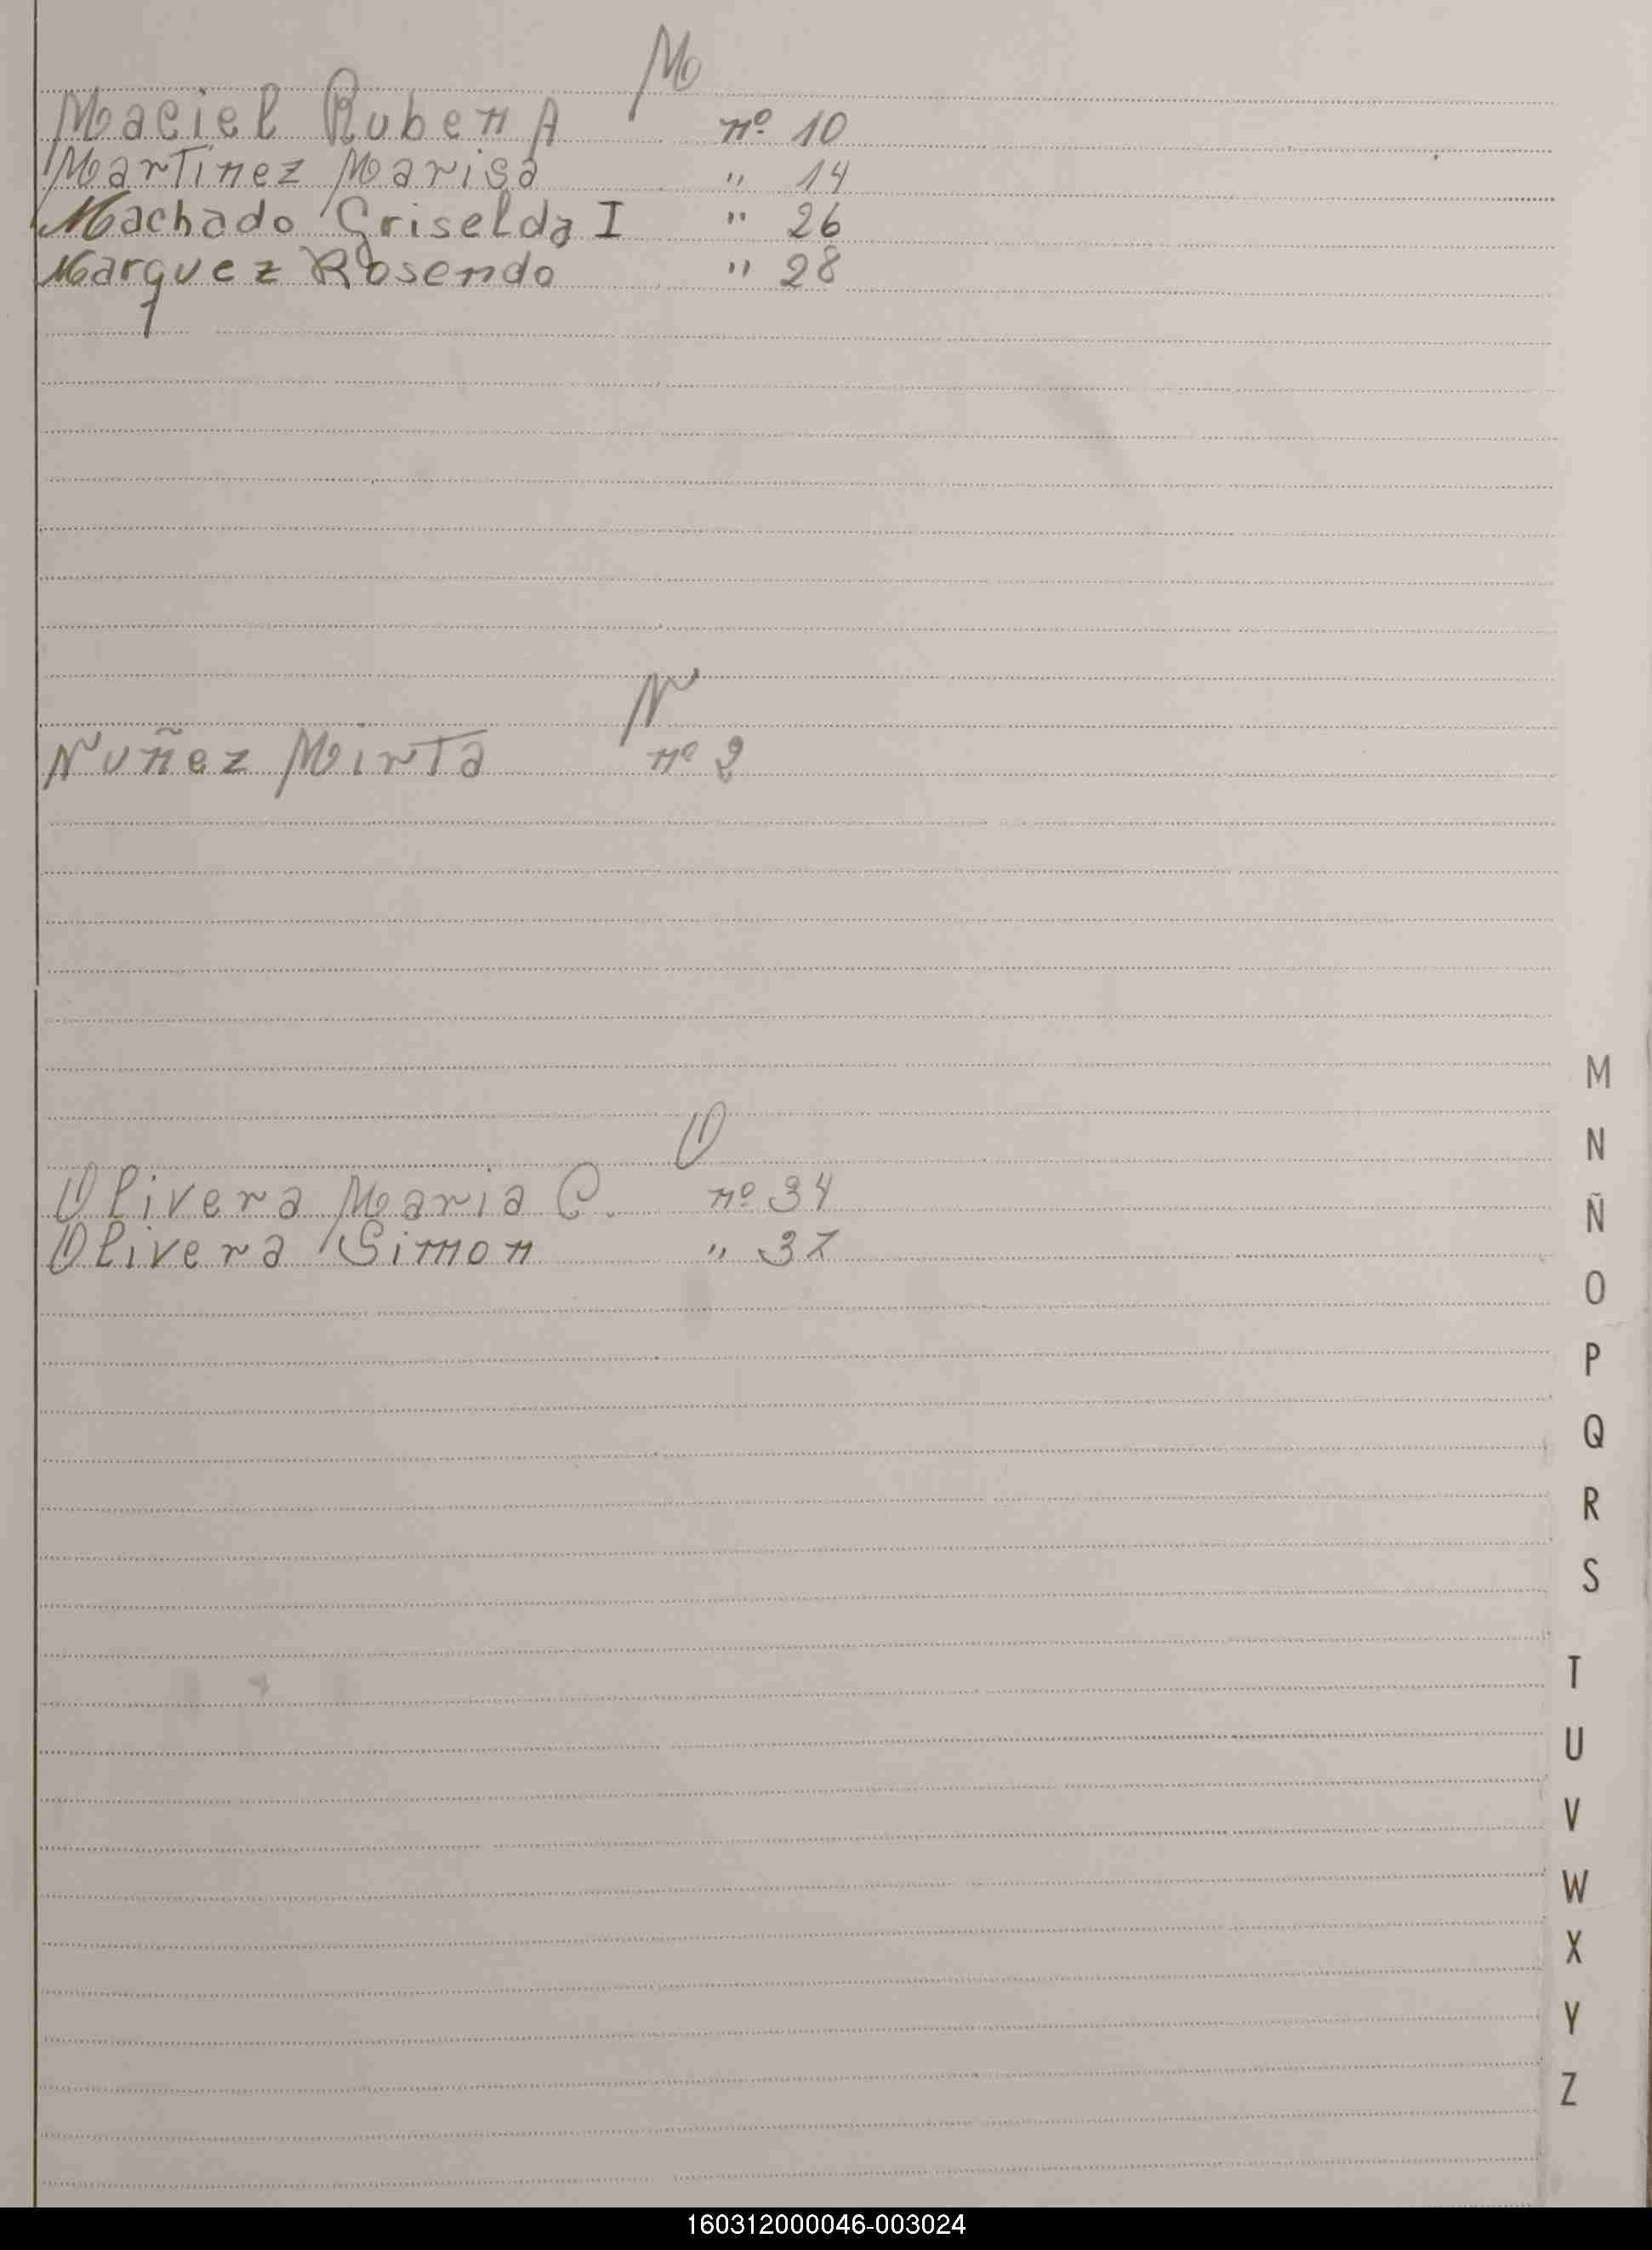 M
Maciel Ruben A nº 10
Martinez Marisa " 14
Machado Griselda I " 26
Marquez Rosendo " 28
N
Nuñez Mirta nº 2
O
Olivera Maria C. nº 34
Olivera Simon " 37
M
N
Ñ
O
P
Q
R
S
T
U
V
W
X
Y
Z
160312000046-003024